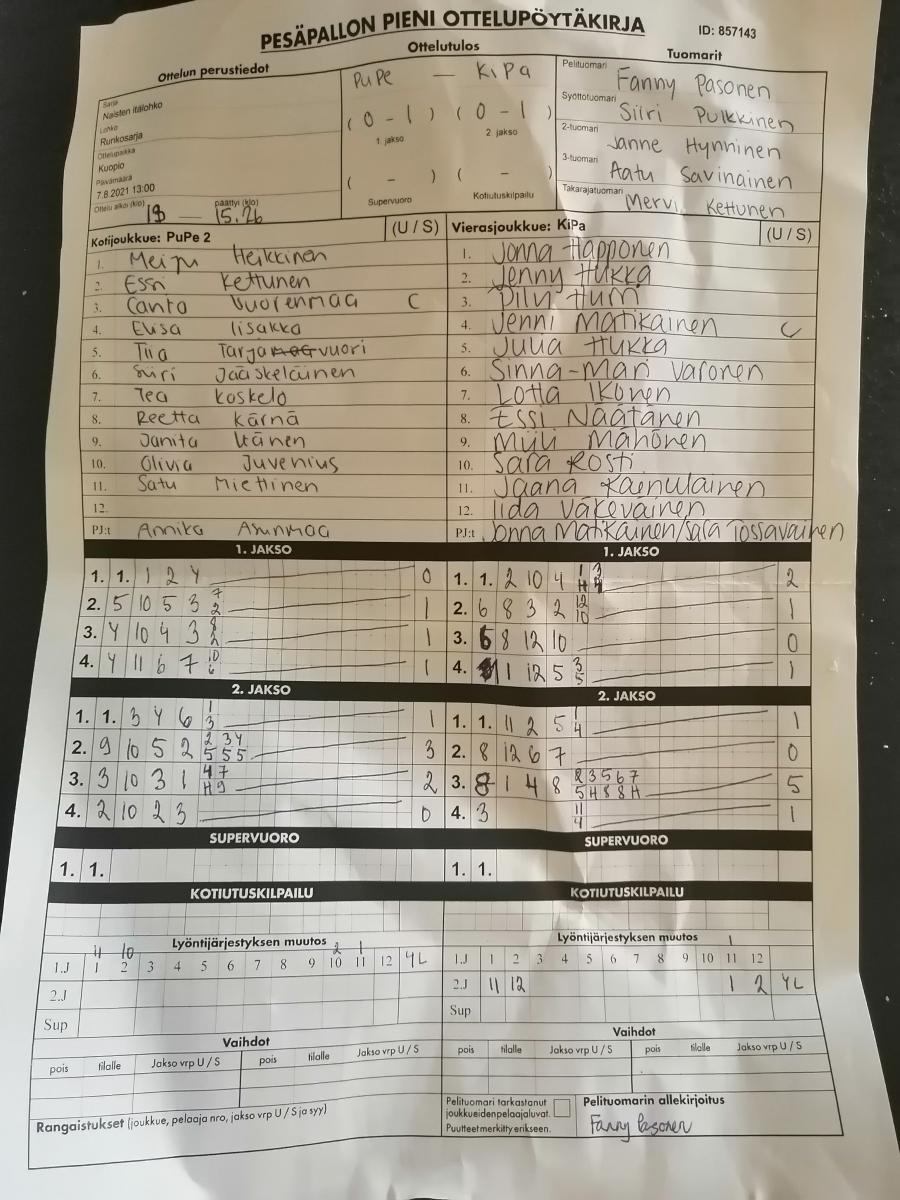 PESÄPALLON PIENI OTTELUPÖYTÄKIRJA
ID: 857143
Ottelun perustiedot
Sarja
Naisten itälohko
Lohko
Runkosarja
Ottelupaikka
Kuopio
Päivämäärä
7.8.2021 13:00
Ottelu alkoi (klo) päättyi (klo)
13 — 15.26
Ottelutulos
PuPe — KiPa
( 0 - 1 ) ( 0 - 1 )
1. jakso 2. jakso
( - ) ( - )
Supervuoro Kotiutuskilpailu
Tuomarit
Pelituomari Fanny Pasonen
Syöttötuomari Siiri Pulkkinen
2-tuomari Janne Hynninen
3-tuomari Aatu Savinainen
Takarajatuomari Mervi Kettunen
Kotijoukkue: PuPe 2 (U / S)
1. Meiju Heikkinen
2. Essi Kettunen
3. Canta Vuorenmaa C
4. Elisa Iisakka
5. Tiia Tarjavuori
6. Siiri Jääskeläinen
7. Tea Koskelo
8. Reetta Kärnä
9. Janita Itänen
10. Olivia Juvenius
11. Satu Miettinen
12.
PJ:t Annika Asunmaa
Vierasjoukkue: KiPa (U / S)
1. Jonna Happonen
2. Jenny Hukka
3. Piju Hurri
4. Jenni Matikainen C
5. Julia Hukka
6. Sinna-Mari Varonen
7. Lotta Ikonen
8. Essi Näätänen
9. Milli Mähönen
10. Sara Kosti
11. Jaana Kainulainen
12. Iida Väkeväinen
PJ:t Jonna Matikainen/Sara Tossavainen
1. JAKSO
1. 1. 1 2 4 0
2. 5 10 5 3 7 2 1
3. 4 10 4 3 8 2 1
4. 4 11 6 7 10 6 1
2. JAKSO
1. 1. 3 4 6 1 3 1
2. 9 10 5 2 2 3 4 5 5 5 3
3. 3 10 3 1 4 7 H 9 2
4. 2 10 2 3 0
SUPERVUORO
1. 1.
KOTIUTUSKILPAILU
1. JAKSO
1. 1. 2 10 4 1 3 H 4 2
2. 6 8 3 2 12 10 1
3. 6 8 12 10 0
4. 1 12 5 3 5 1
2. JAKSO
1. 1. 11 2 5 1 4 1
2. 8 12 6 7 0
3. 8 1 4 8 2 3 5 6 7 5 H 8 8 H 5
4. 3 11 4 1
SUPERVUORO
1. 1.
KOTIUTUSKILPAILU
Lyöntijärjestyksen muutos
11 10 2 1
1.J 1 2 3 4 5 6 7 8 9 10 11 12 YL
2.J
Sup
Vaihdot
pois tilalle Jakso vrp U / S pois tilalle Jakso vrp U / S
Rangaistukset (joukkue, pelaaja nro, jakso vrp U / S ja syy)
Lyöntijärjestyksen muutos
1
1.J 1 2 3 4 5 6 7 8 9 10 11 12
2.J 11 12 1 2 YL
Sup
Vaihdot
pois tilalle Jakso vrp U / S pois tilalle Jakso vrp U / S
Pelituomari tarkastanut
joukkueidenpelaajaluvat.
Puutteet merkitty erikseen.
Pelituomarin allekirjoitus
Fanny Pasonen